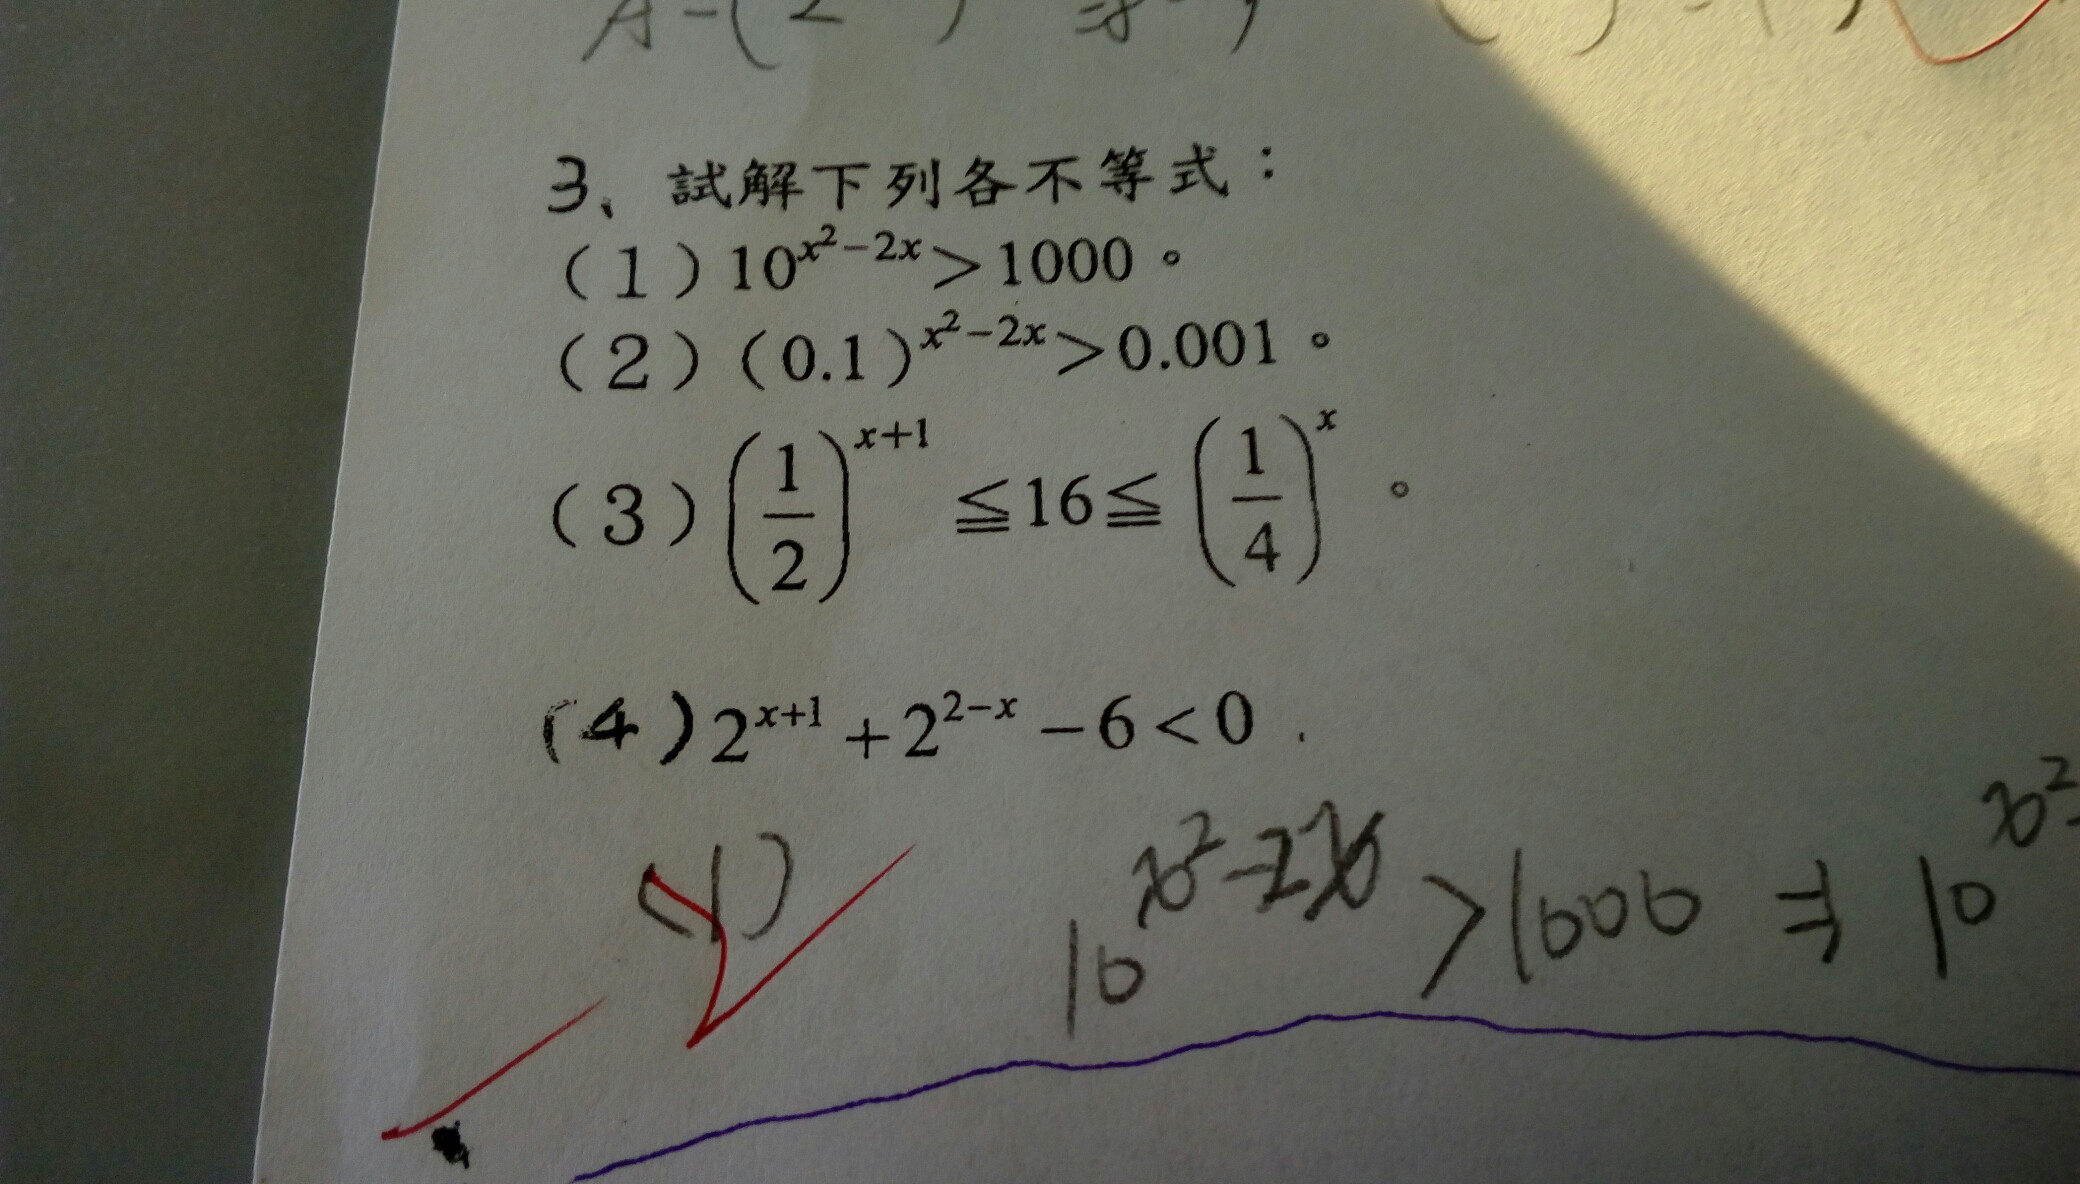 3、試解下列各不等式：
(1)10^{x²−2x}＞1000。
(2)(0.1)^{x²−2x}＞0.001。
(3)(1/2)^{x+1}≦16≦(1/4)^{x}。
(4)2^{x+1}+2^{2−x}−6<0.
(1) 10^{x²−2x}>1000 ⇒ 10^{x²−